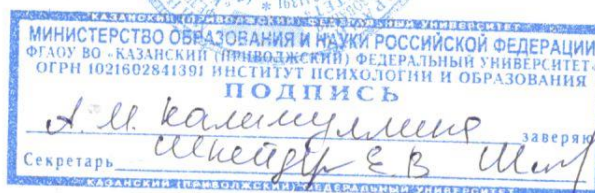 КАЗАНСКИЙ (ПРИВОЛЖСКИЙ) ФЕДЕРАЛЬНЫЙ УНИВЕРСИТЕТ
МИНИСТЕРСТВО ОБРАЗОВАНИЯ И НАУКИ РОССИЙСКОЙ ФЕДЕРАЦИИ
ФГАОУ ВО «КАЗАНСКИЙ (ПРИВОЛЖСКИЙ) ФЕДЕРАЛЬНЫЙ УНИВЕРСИТЕТ»
ОГРН 1021602841391 ИНСТИТУТ ПСИХОЛОГИИ И ОБРАЗОВАНИЯ
ПОДПИСЬ
А. М. Калимуллина
заверяю
Секретарь Шнейдер Е.В
КАЗАНСКИЙ (ПРИВОЛЖСКИЙ) ФЕДЕРАЛЬНЫЙ УНИВЕРСИТЕТ